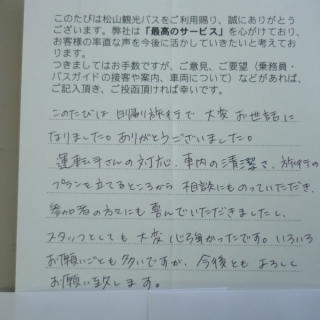 このたびは松山観光バスをご利用賜り、誠にありがとう
ございます。弊社は「最高のサービス」を心がけており、
お客様の率直な声を今後に活かしていきたいと考えてお
ります。
つきましてはお手数ですが、ご意見、ご要望（乗務員・
バスガイドの接客や案内、車両について）などがあれば、
ご記入頂き、ご投函頂ければ幸いです。
このたびは 日帰り旅行で 大変お世話に
なりました。ありがとうございました。
運転手さんの対応、車内の清潔さ、旅行の
プランを立てるところから 相談にものっていただき、
参加者の方々にも喜んでいただきましたし、
スタッフとしても 大変 心強かったです。いろいろ
お願いごとも多いですが、今後とも よろしく
お願い致します。